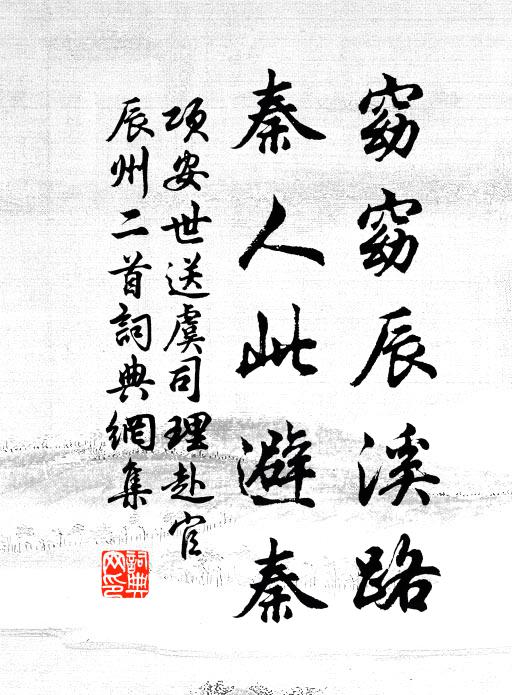 窈窈辰溪路
秦人此避秦
項安世送虞司理赴官
辰州二首詞典網集
詞典
网印